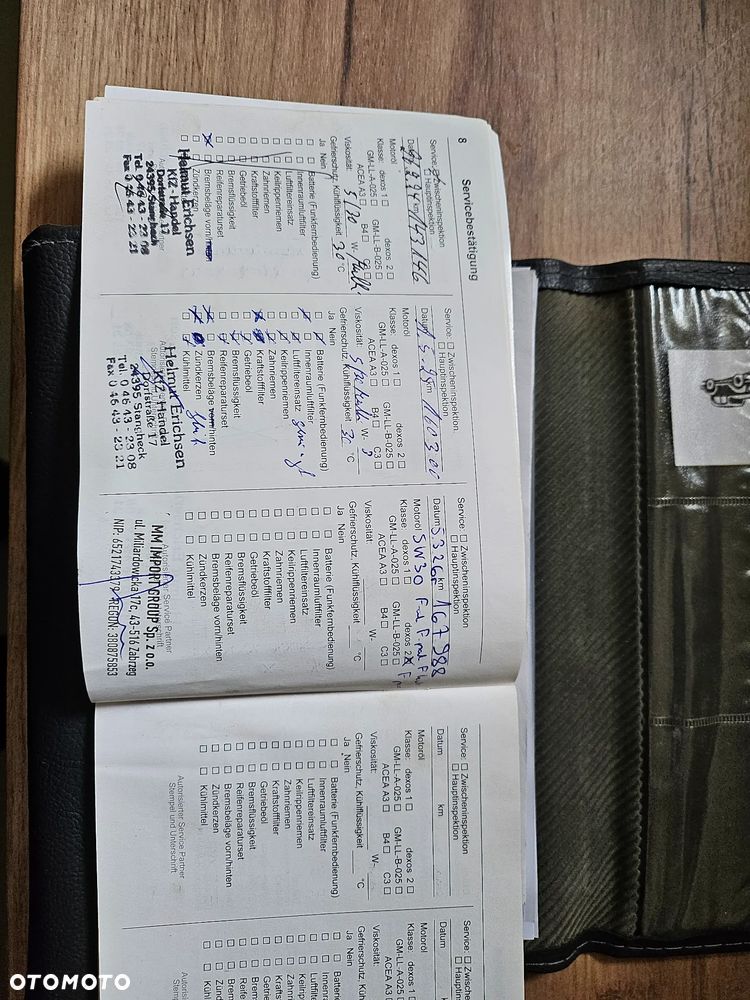 8
Servicebestätigung
Service: Zwischeninspektion
Hauptinspektion
Datum km 143146
Motoröl
Klasse: dexos 1 dexos 2
GM-LL-A-025 GM-LL-B-025
ACEA A3 B4 C3
Viskosität: 5/30 W-
Gefrierschutz, Kühlflüssigkeit 30 °C
Ja Nein
Batterie (Funkfernbedienung)
Innenraumluftfilter
Luftfiltereinsatz
Keilrippenriemen
Zahnriemen
Kraftstofffilter
Getriebeöl
Bremsflüssigkeit
Reifenreparaturset
Bremsbeläge vorn/hinten
Zündkerzen
Helmut Erichsen
KfZ-Handel
Dorfstraße 17
24395 Stangheck
Tel. 0 46 43 - 23 08
Fax 0 46 43 - 23 21
Service: Zwischeninspektion
Hauptinspektion
Datum km 160300
Motoröl
Klasse: dexos 1 dexos 2
GM-LL-A-025 GM-LL-B-025
ACEA A3 B4 C3
Viskosität: W-
Gefrierschutz, Kühlflüssigkeit 30 °C
Ja Nein
Batterie (Funkfernbedienung)
Innenraumluftfilter
Luftfiltereinsatz
Keilrippenriemen
Zahnriemen
Kraftstofffilter
Getriebeöl
Bremsflüssigkeit
Reifenreparaturset
Bremsbeläge vorn/hinten
Zündkerzen
Kühlmittel
Helmut Erichsen
KfZ-Handel
Dorfstraße 17
24395 Stangheck
Tel. 0 46 43 - 23 08
Fax 0 46 43 - 23 21
Service: Zwischeninspektion
Hauptinspektion
Datum km 167988
Motoröl 5W30
Klasse: dexos 1 dexos 2
GM-LL-A-025 GM-LL-B-025
ACEA A3 B4 C3
Viskosität: W-
Gefrierschutz, Kühlflüssigkeit °C
Ja Nein
Batterie (Funkfernbedienung)
Innenraumluftfilter
Luftfiltereinsatz
Keilrippenriemen
Zahnriemen
Kraftstofffilter
Getriebeöl
Bremsflüssigkeit
Reifenreparaturset
Bremsbeläge vorn/hinten
Zündkerzen
Kühlmittel
Service Partner
MM IMPORT GROUP Sp. z o.o.
ul. Miliardowicka 17c, 43-516 Zabrzeg
NIP: 6521743379 REGON: 380875853
Service: Zwischeninspektion
Hauptinspektion
Datum km
Motoröl
Klasse: dexos 1 dexos 2
GM-LL-A-025 GM-LL-B-025
ACEA A3 B4 C3
Viskosität: W-
Gefrierschutz, Kühlflüssigkeit °C
Ja Nein
Batterie (Funkfernbedienung)
Innenraumluftfilter
Luftfiltereinsatz
Keilrippenriemen
Zahnriemen
Kraftstofffilter
Getriebeöl
Bremsflüssigkeit
Reifenreparaturset
Bremsbeläge vorn/hinten
Zündkerzen
Kühlmittel
Autorisierter Service Partner
Stempel und Unterschrift
Service:
Datum
Motoröl
Klasse: dexos 1
GM-LL-A-025
ACEA A3
Viskosität:
Gefrierschutz, Kühlflüssigkeit
Ja Nein
Innenraumluftfilter
Luftfiltereinsatz
Keilrippenriemen
Zahnriemen
Kraftstofffilter
Getriebeöl
Zündkerzen
Kühlmittel
OTOMOTO